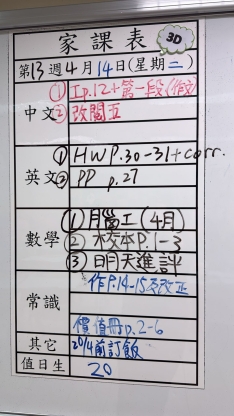 家課表
3D
第13週4月14日(星期二)
中文
① Ip.12+第一段(作文)
② 改閱五
英文
① HWP.30-31+corr.
② PP p.27
數學
① 月習工(4月)
② 校本P.1-3
③ 明天進評
常識
作P.14-15及改正
價值冊p.2-6
其它
20/4前訂飯
值日生
20